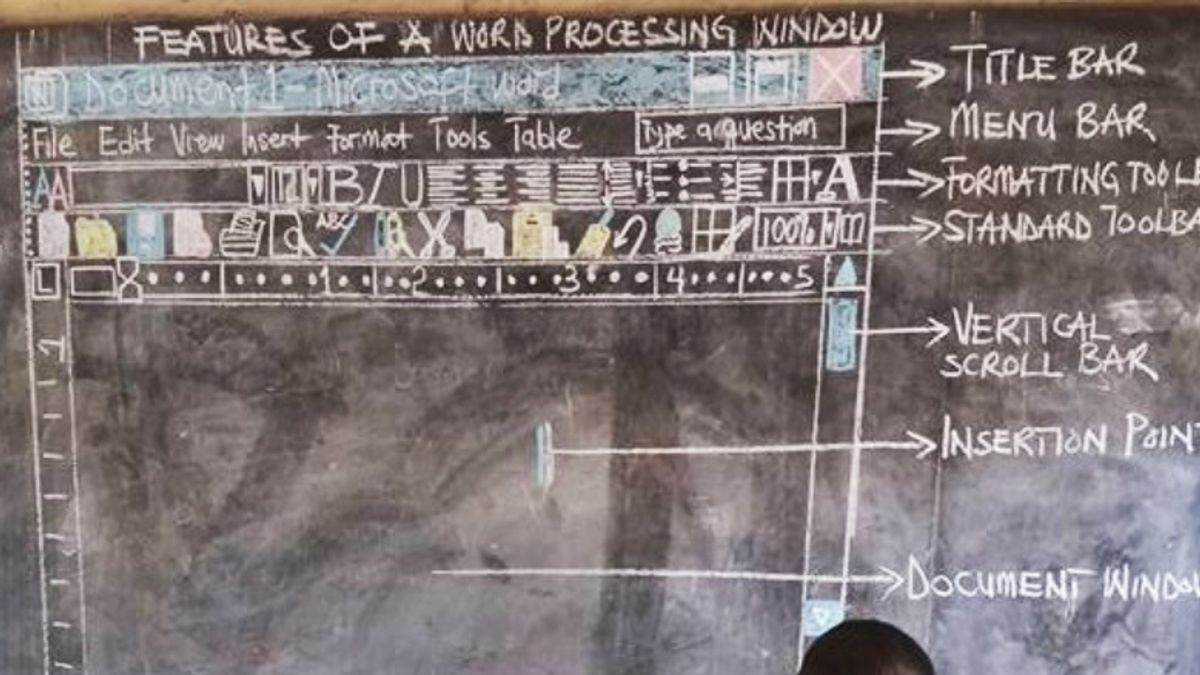 FEATURES OF A WORD PROCESSING WINDOW
W Document 1 - Microsoft word
TITLE BAR
File Edit View Insert Format Tools Table Type a question
MENU BAR
A A 12 B I U A
FORMATTING TOOLB
ABC 100%
STANDARD TOOLBA
L 1 2 3 4 5
1
VERTICAL
SCROLL BAR
INSERTION POINT
DOCUMENT WINDOW